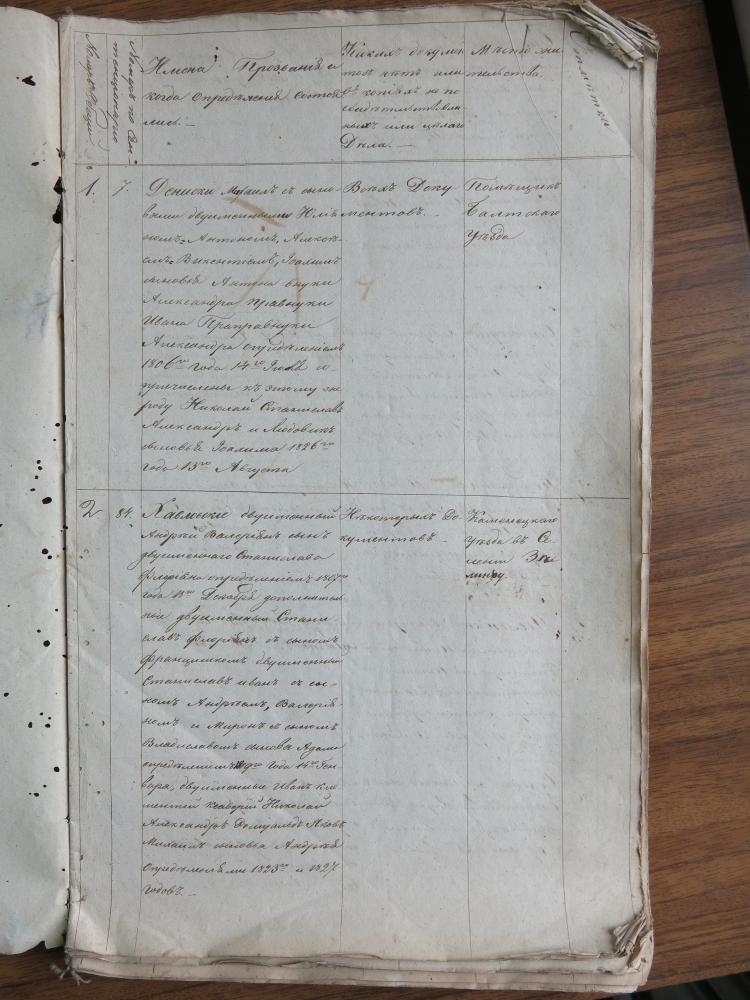 Имена Прозвания и
когда определения состоя
лись. —
Какихъ докумен
товъ нетъ или
въ копiяхъ не по
свидетельствован
ныхъ или целаго
Дела. —
Место жи
тельства.
Отметки
1.
7.
Дениски Михаилъ съ сыно-
вьями двуименными
Антономъ, Алексе-
емъ Викентiемъ, Iоахимъ
сыновья Антона внуки
Александра правнуки
Ивана Праправнуки
Александра определенiемъ
1806го года 14го
причислены къ этому же
роду Николай Станиславъ
Александръ и Людовикъ
сыновья Iоахима 1826го
года 13го Августа
Всехъ Доку
ментовъ. —
Помещикъ
Балтскаго
уезда
2
84.
двуименный
Андрей Валерiанъ сынъ
двуименнаго Станислава
Флорiана определенiемъ
года Декабря дополнитель
но двуименный Стани-
славъ Флорiанъ съ сыномъ
Францишкомъ двуименный
Станиславъ Иванъ съ сы-
номъ Андреемъ, Валерiа-
номъ и Миронъ съ сыномъ
Владиславомъ сыновья Адама
определенiемъ года 14го Ген-
варя, двуименные Иванъ Кле-
ментiй Ксаверiй Николай
Александръ Ромуальдъ Яковъ
Михаилъ сыновья Андрея
Определенiями 1823го и 1827
годовъ. —
Некоторыхъ До
кументовъ —
Каменецкаго
уезда въ С.